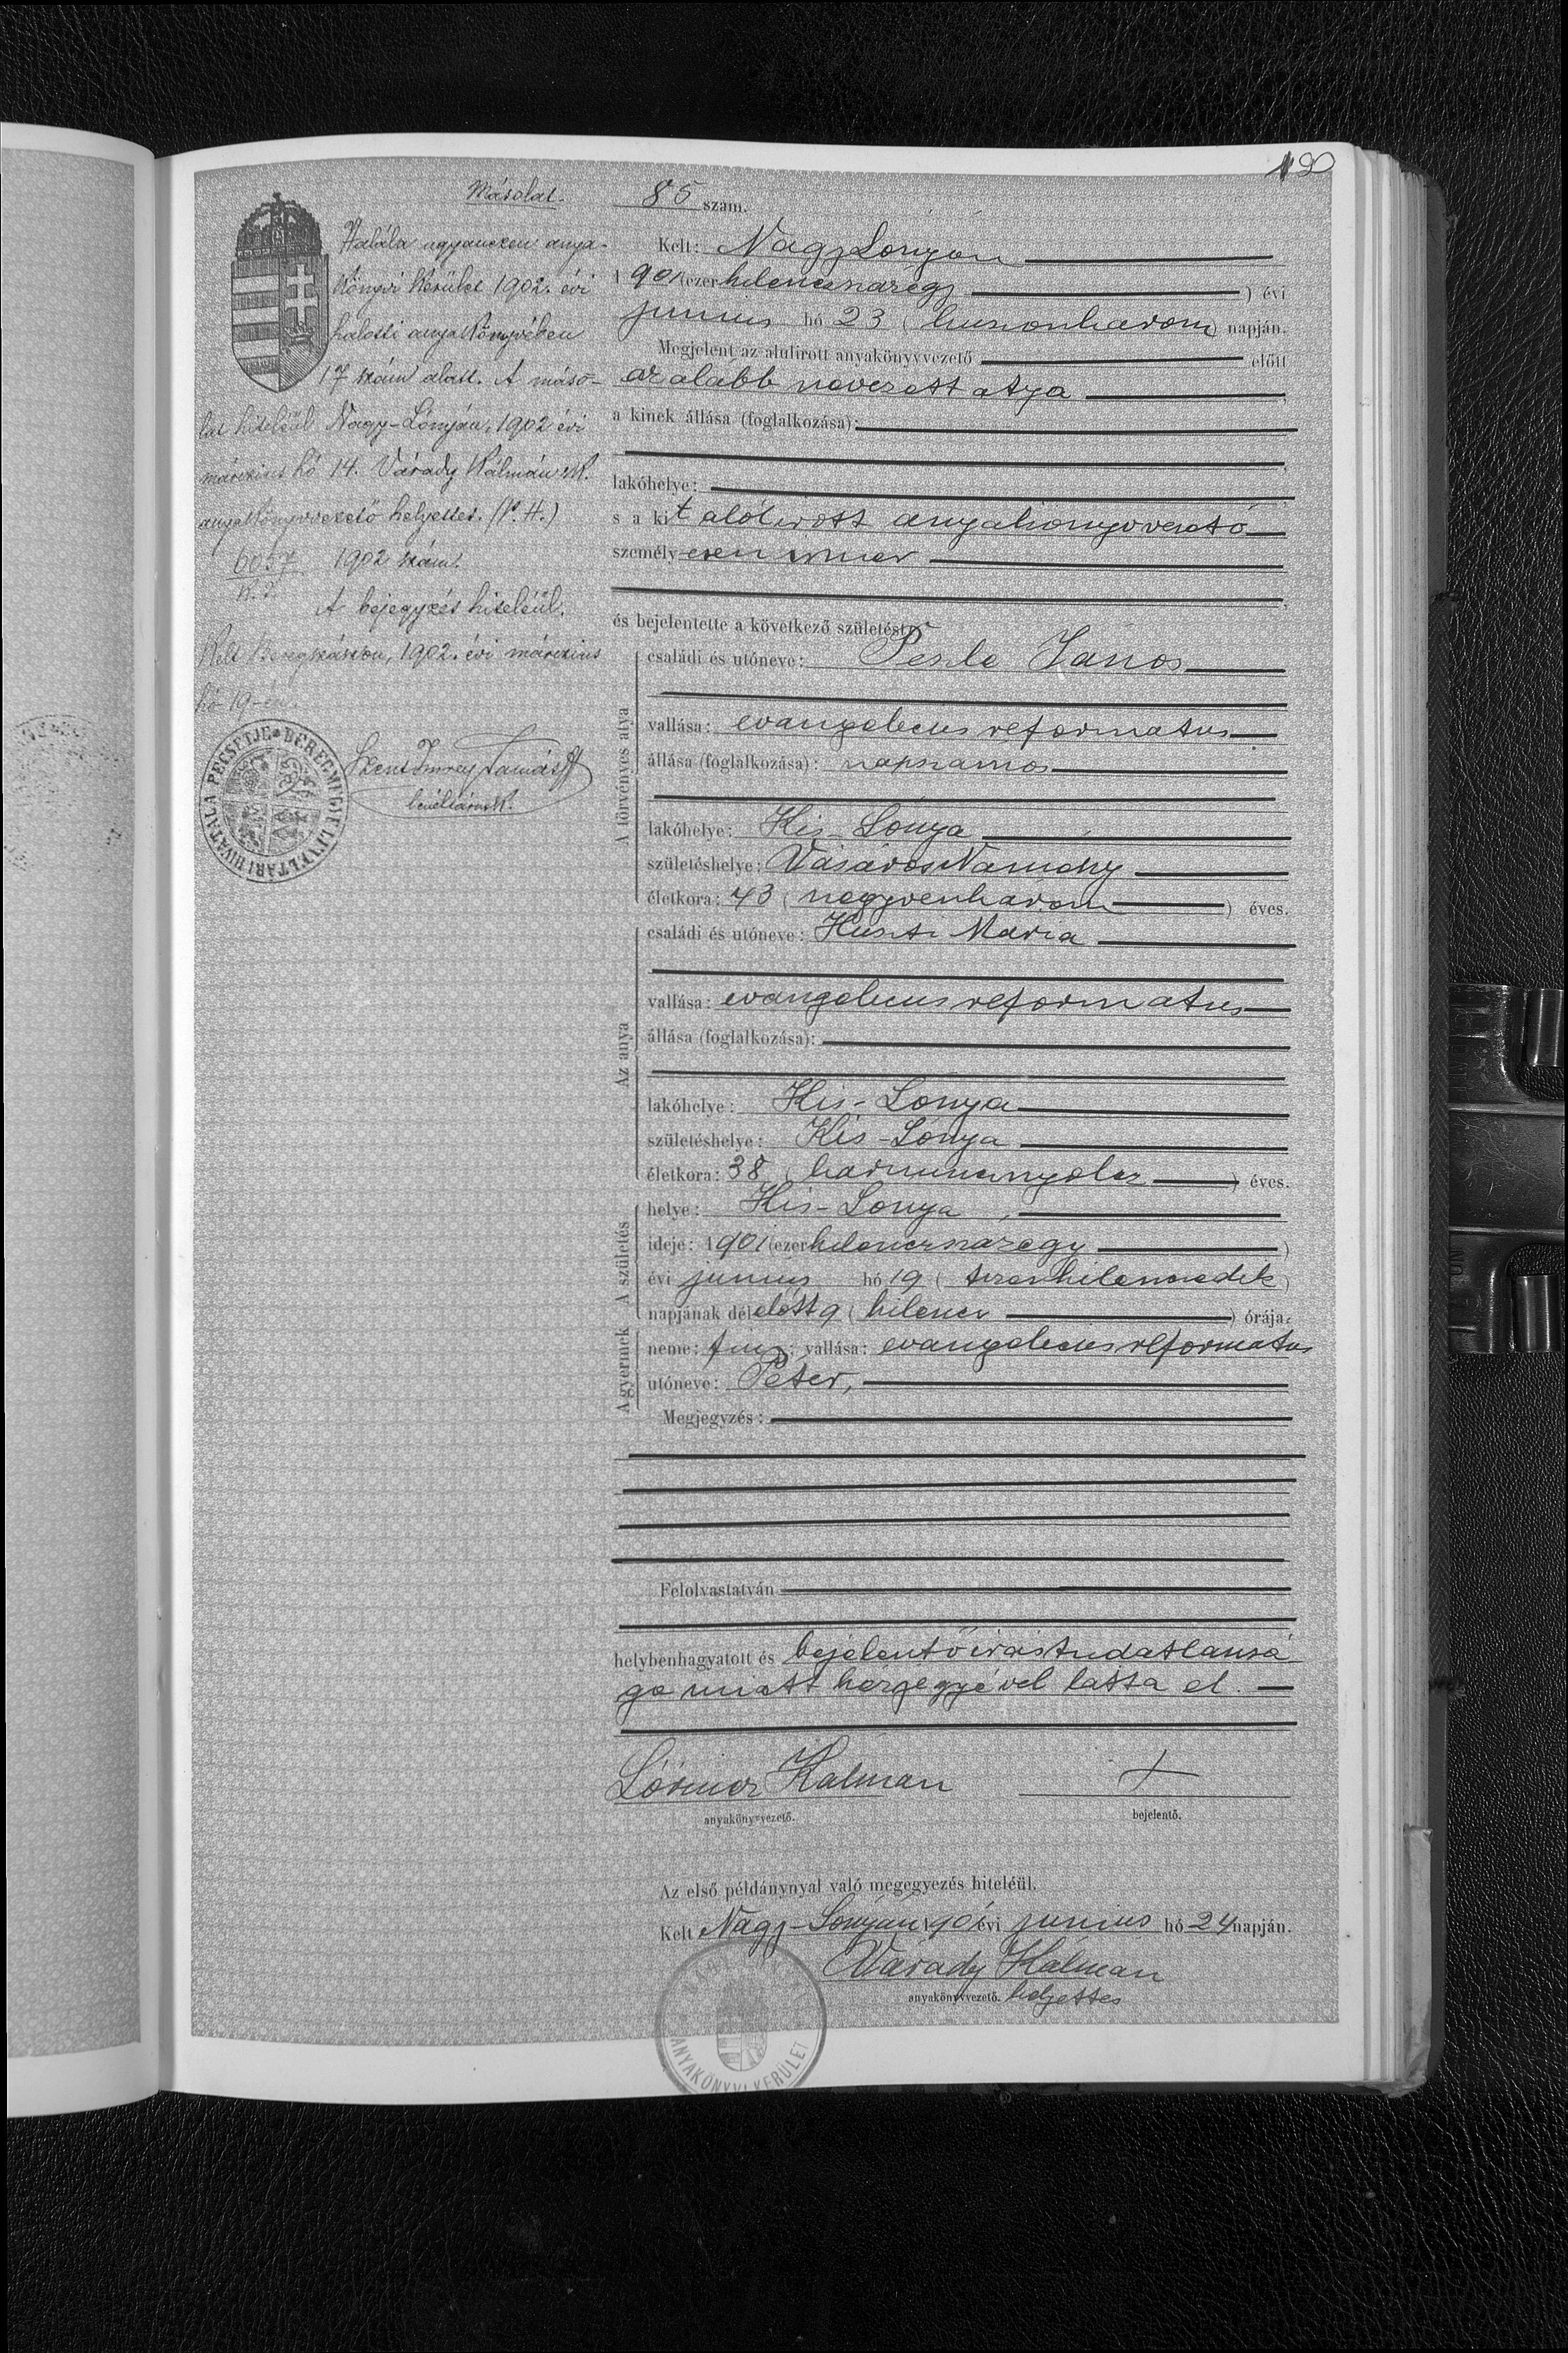 190
Másolat.
Halála ugyanezen anya-
könyvi kerület 1902. évi
halotti anyakönyvében
17 szám alatt. A máso-
lat hiteléül Nagy-Lónyán, 1902 évi
márczius hó 14. Várady Kálmán sk.
anyakönyvvezető helyettes. (P. H.)
6057 1902 szám.
A bejegyzés hiteléül.
Kelt Beregszászon, 1902. évi márczius
hó 19-én.
Szent Imrey Tamás
levéltárnok.
BEREGMEGYE LEVÉLTÁRI HIVATALA PECSÉTJE
85 szám.
Kelt: Nagy Lónyán
1901 (ezerkilencszázegy) évi
junius hó 23 (huszonharom) napján.
Megjelent az alulirott anyakönyvvezető előtt
az alább nevezett atya,
a kinek állása (foglalkozása):
lakóhelye:
s a kit alólirott anyakönyvvezető
személyesen ismer
és bejelentette a következő születést:
A törvényes atya
családi és utóneve: Peszle János
vallása: evangelicus reformatus
állása (foglalkozása): napszamos
lakóhelye: Kis-Lónya
születéshelye: Vásáros Namény
életkora: 43 (negyvenharom) éves.
Az anya
családi és utóneve: Huszti Mária
vallása: evangelicus reformatus
állása (foglalkozása):
lakóhelye: Kis-Lonya
születéshelye: Kis-Lónya
életkora: 38 (harmincnyolcz) éves.
A születés
helye: Kis-Lonya,
ideje: 1901 (ezerkilencszazegy)
évi junius hó 19 (tizenkilencedik)
napjának délelőtt 9 (kilencz) órája.
A gyermek
neme: fiu; vallása: evangelicus reformatus
utóneve: Péter,
Megjegyzés:
Felolvastatván
helybenhagyatott és bejelentő irástudatlansá
ga miatt kézjegyével látta el.
Lőrincz Kálmán +
anyakönyvvezető. bejelentő.
Az első példánynyal való megegyezés hiteléül.
Kelt Nagy-Lonyán 1901 évi junius hó 24 napján.
Várady Kálmán
anyakönyvvezető. helyettes
ANYAKÖNYVI KERÜLET